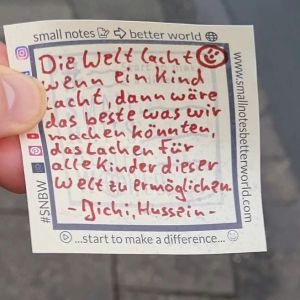 small notes → better world
Die Welt lacht
wenn ein Kind
lacht, dann wäre
das beste was wir
machen könnten,
das Lachen für
alle Kinder dieser
Welt zu ermöglichen.
- Jichi, Hussein -
...start to make a difference...
#SNBW
www.smallnotesbetterworld.com